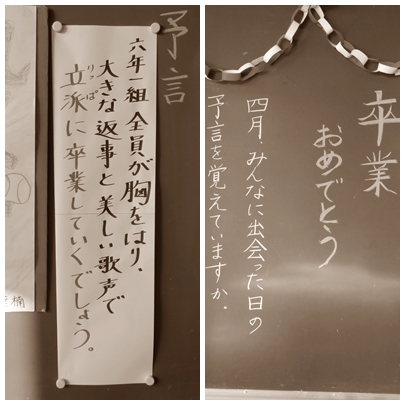 予言
六年一組 全員が胸をはり、
大きな返事と美しい歌声で
立派に卒業していくでしょう。
りっぱ
卒業
おめでとう
四月、みんなに出会った日の
予言を覚えていますか。